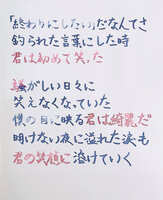 「終わりにしたい」だなんてさ
釣られた言葉にした時
君は初めて笑った
騒がしい日々に
笑えなくなっていた
僕の目に映る君は綺麗だ
明けない夜に溢れた涙も
君の笑顔に溶けていく